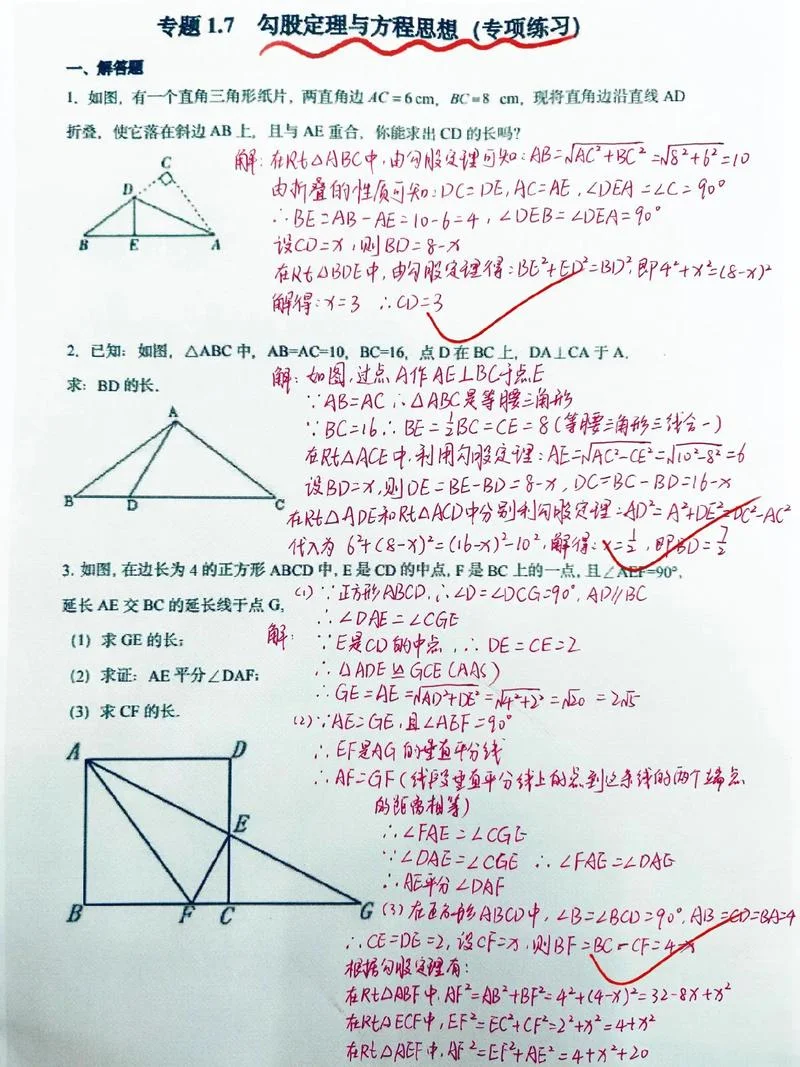 专题 1.7 勾股定理与方程思想（专项练习）
一、解答题
1. 如图，有一个直角三角形纸片，两直角边 AC = 6 cm，BC = 8 cm，现将直角边沿直线 AD
折叠，使它落在斜边 AB 上，且与 AE 重合，你能求出 CD 的长吗？
解：在Rt△ABC中，由勾股定理可知：AB=√AC²+BC²=√8²+6²=10
由折叠的性质可知：DC=DE，AC=AE，∠DEA=∠C=90°
∴BE=AB-AE=10-6=4，∠DEB=∠DEA=90°
设CD=x，则BD=8-x
在Rt△BDE中，由勾股定理得：BE²+ED²=BD²，即4²+x²=(8-x)²
解得：x=3 ∴CD=3
C
D
B E A
2. 已知：如图，△ABC 中，AB=AC=10，BC=16，点 D 在 BC 上，DA⊥CA 于 A.
求：BD 的长.
解：如图，过点A作AE⊥BC于点E
∵AB=AC ∴△ABC是等腰三角形
∵BC=16 ∴BE=½BC=CE=8(等腰三角形三线合一)
在Rt△ACE中，利用勾股定理：AE=√AC²-CE²=√10²-8²=6
设BD=x，则DE=BE-BD=8-x，DC=BC-BD=16-x
在Rt△ADE和Rt△ACD中分别利勾股定理：AD²=A²+DE²=DC²-AC²
代入为 6²+(8-x)²=(16-x)²-10²，解得：x=½，即BD=7/2
A
B D C
3. 如图，在边长为 4 的正方形 ABCD 中，E 是 CD 的中点，F 是 BC 上的一点，且∠AEF=90°，
延长 AE 交 BC 的延长线于点 G，
（1）求 GE 的长；
（2）求证：AE 平分∠DAF；
（3）求 CF 的长.
解：
(1)∵正方形ABCD，∴∠D=∠DCG=90°，AD∥BC
∴∠DAE=∠CGE
∵E是CD的中点，∴DE=CE=2
∴△ADE≌GCE(AAS)
∴GE=AE=√AD²+DE²=√4²+2²=√20=2√5
(2)∵AE=GE，且∠AEF=90°
∴EF是AG的垂直平分线
∴AF=GF(线段垂直平分线上的点到这条线的两个端点
的距离相等)
∴∠FAE=∠CGE
∵∠DAE=∠CGE ∴∠FAE=∠DAE
∴AE平分∠DAF
A D
E
B F C G
(3)在正方形ABCD中，∠B=∠BCD=90°，AB=CD=BA=4
∴CE=DE=2，设CF=x，则BF=BC-CF=4-x
根据勾股定理有：
在Rt△ABF中，AF²=AB²+BF²=4²+(4-x)²=32-8x+x²
在Rt△ECF中，EF²=EC²+CF²=2²+x²=4+x²
在Rt△AEF中，AF²=EF²+AE²=4+x²+20